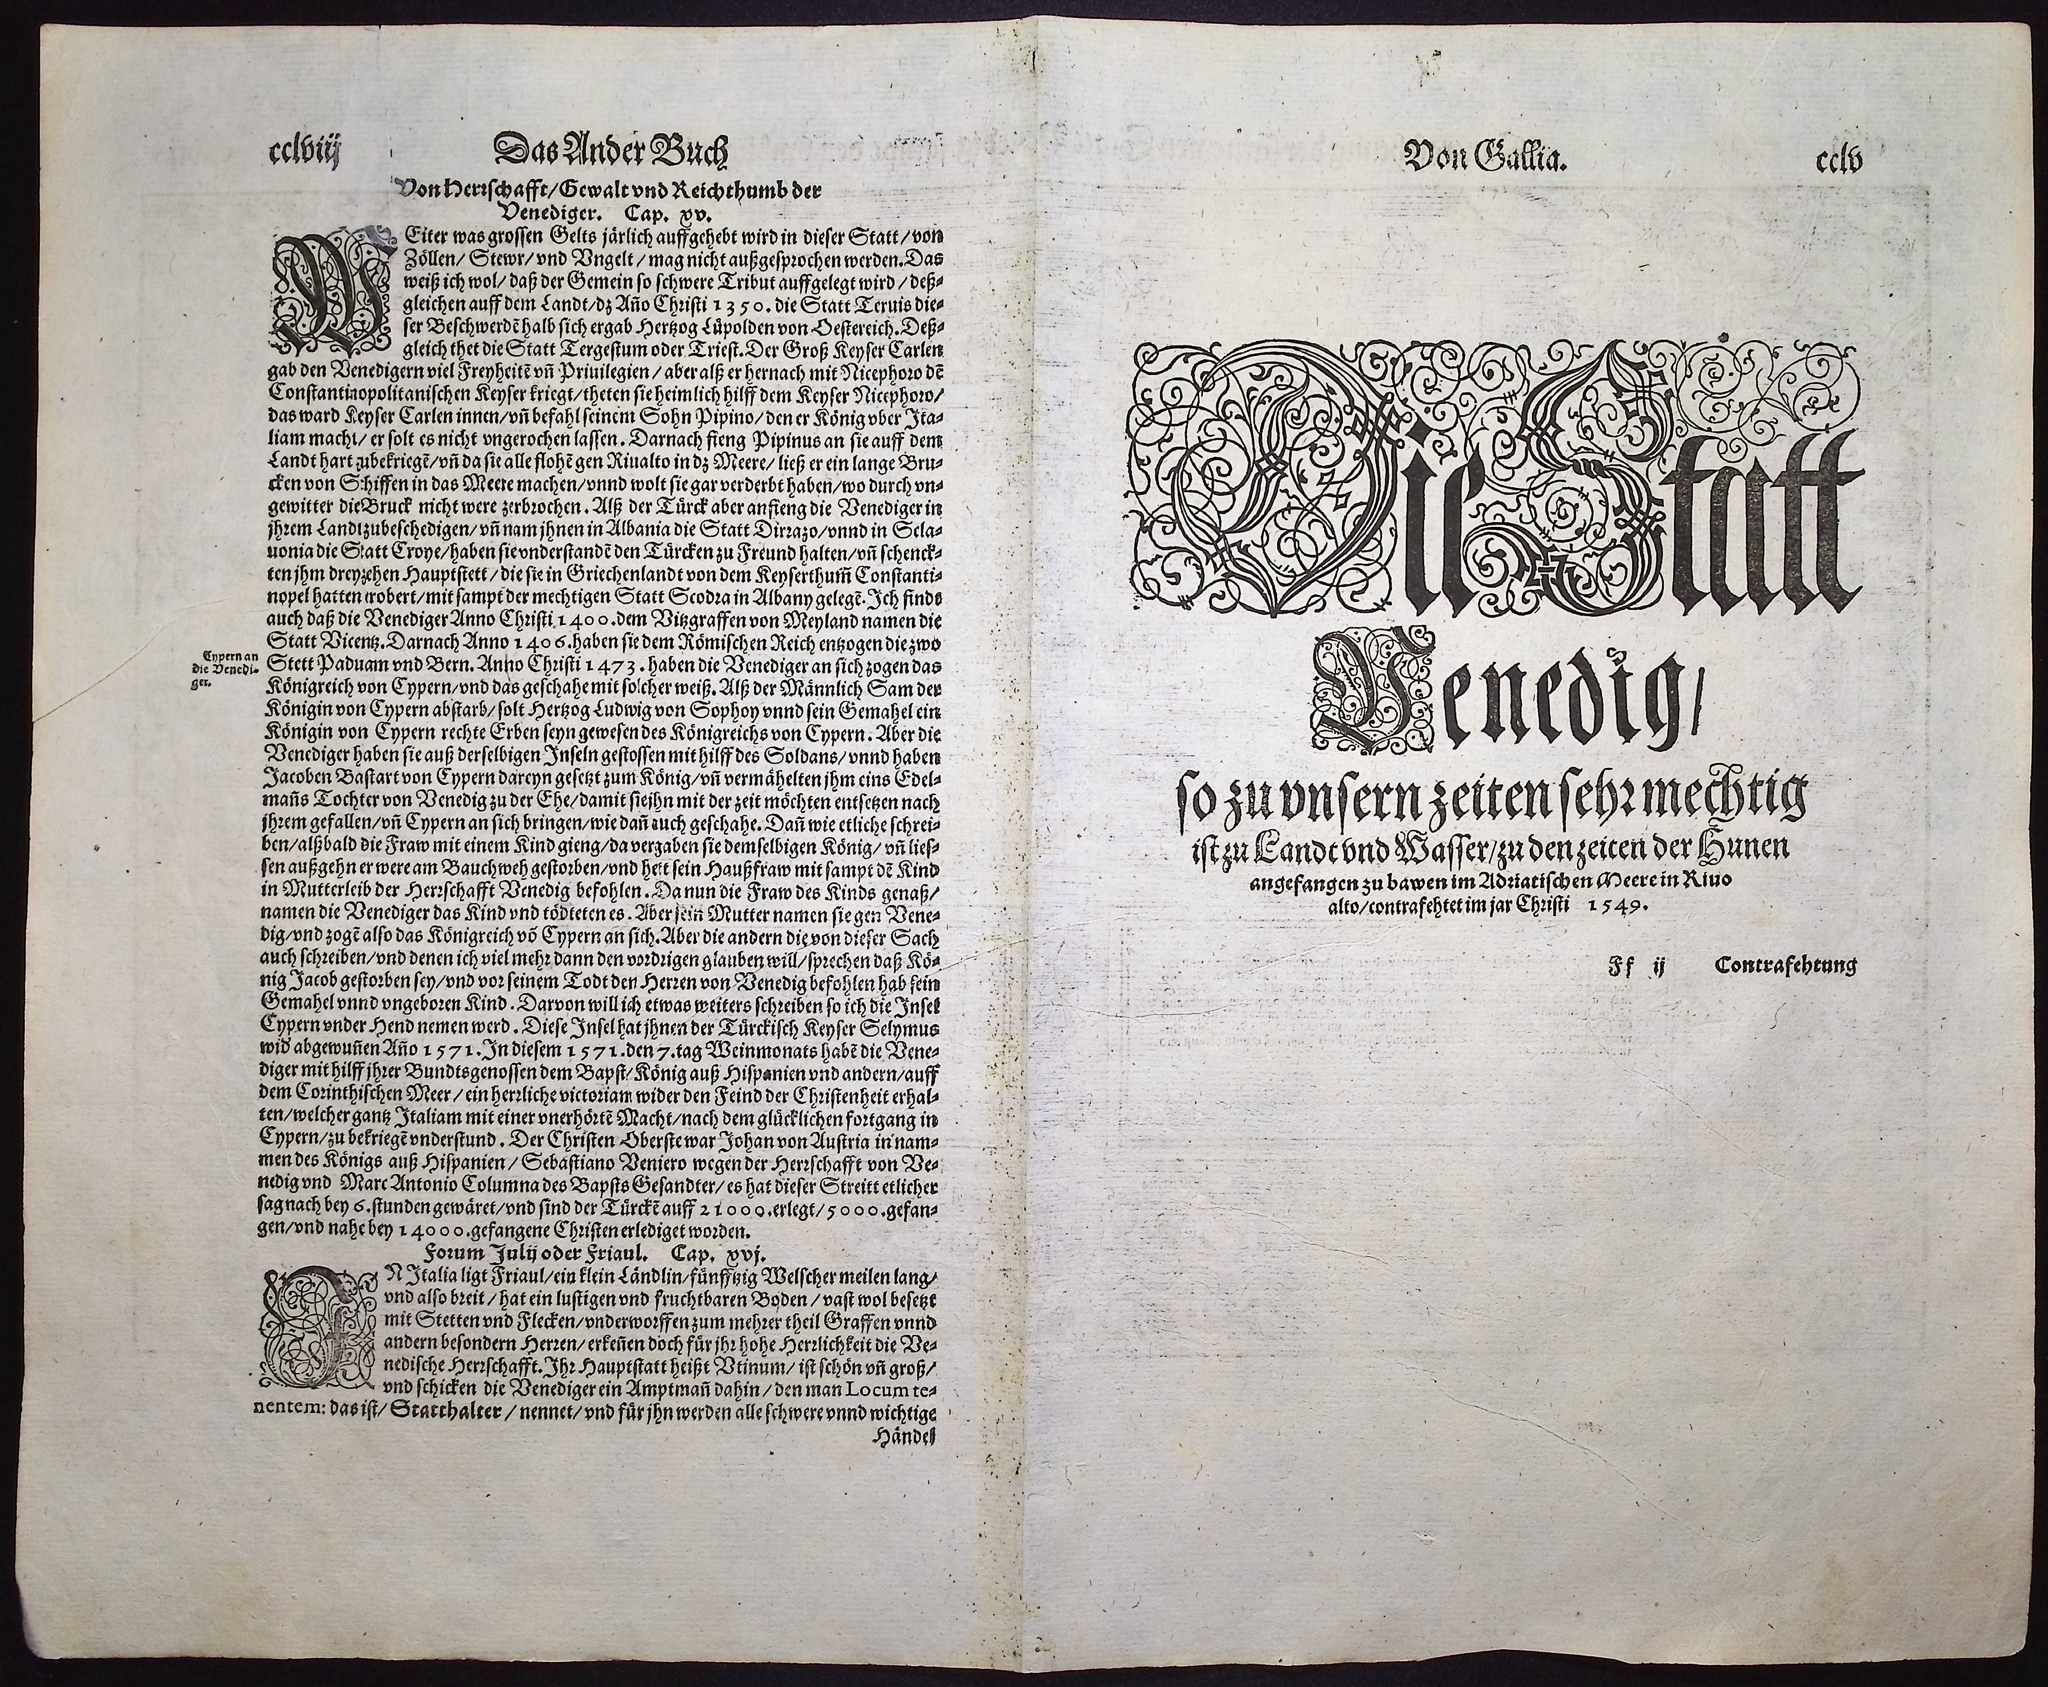 cclviij Das Ander Buch
Von Herrschafft/Gewalt vnd Reichthumb der
Venediger. Cap. xv.
WEiter was grossen Gelts järlich auffgehebt wird in dieser Statt/von
Zöllen/Stewr/vnd Vngelt/mag nicht außgesprochen werden. Das
weiß ich wol/daß der Gemein so schwere Tribut auffgelegt wird/deß-
gleichen auff dem Landt/dz Año Christi 1350. die Statt Teruis die-
ser Beschwerdē halb sich ergab Hertzog Lüpolden von Oestereich. Deß-
gleich thet die Statt Tergestum oder Triest. Der Groß Keyser Carlen
gab den Venedigern viel Freyheitē vñ Priuilegien/aber alß er hernach mit Nicephoro dē
Constantinopolitanischen Keyser kriegt/theten sie heimlich hilff dem Keyser Nicephoro/
das ward Keyser Carlen innen/vñ befahl seinem Sohn Pipino/den er König vber Ita-
liam macht/er solt es nicht vngerochen lassen. Darnach fieng Pipinus an sie auff dem
Landt hart zubekriegē/vñ da sie alle flohē gen Riualto in dz Meere/ließ er ein lange Bru-
cken von Schiffen in das Meere machen/vnnd wolt sie gar verderbt haben/wo durch vn-
gewitter die Bruck nicht were zerbrochen. Alß der Türck aber anfieng die Venediger in
jhrem Landt zubeschedigen/vñ nam jhnen in Albania die Statt Dirrazo/vnnd in Scla-
uonia die Statt Croye/haben sie vnderstandē den Türcken zu Freund halten/vñ schenck-
ten jhm dreyzehen Hauptstett/die sie in Griechenlandt von dem Keyserthum̃ Constanti-
nopel hatten erobert/mit sampt der mechtigen Statt Scodra in Albany gelegē. Ich finde
auch daß die Venediger Anno Christi 1400. dem Vitzgraffen von Meyland namen die
Statt Vicentz. Darnach Anno 1406. haben sie dem Römischen Reich entzogen die zwo
Cypern an
die Venedi-
ger.
Stett Paduam vnd Bern. Anno Christi 1473. haben die Venediger an sich zogen das
Königreich von Cypern/vnd das geschahe mit solcher weiß. Alß der Männlich Sam der
Königin von Cypern abstarb/solt Hertzog Ludwig von Sophoy vnnd sein Gemahel ein
Königin von Cypern rechte Erben seyn gewesen des Königreichs von Cypern. Aber die
Venediger haben sie auß derselbigen Inseln gestossen mit hilff des Soldans/vnnd haben
Jacoben Bastart von Cypern dareyn gesetzt zum König/vñ vermähelten jhm eins Edel-
mañs Tochter von Venedig zu der Ehe/damit sie jhn mit der zeit möchten entsetzen nach
jhrem gefallen/vñ Cypern an sich bringen/wie dañ auch geschahe. Dañ wie etliche schrei-
ben/alßbald die Fraw mit einem Kind gieng/da vergaben sie demselbigen König/vñ lies-
sen außgehn er were am Bauchweh gestorben/vnd hett sein Haußfraw mit sampt dē Kind
in Mutterleib der Herrschafft Venedig befohlen. Da nun die Fraw des Kinds genaß/
namen die Venediger das Kind vnd tödteten es. Aber sein Mutter namen sie gen Vene-
dig/vnd zogē also das Königreich vō Cypern an sich. Aber die andern die von dieser Sach
auch schreiben/vnd denen ich viel mehr dann den vordrigen glauben will/sprechen daß Kö-
nig Jacob gestorben sey/vnd vor seinem Todt den Herren von Venedig befohlen hab sein
Gemahel vnnd vngeboren Kind. Darvon will ich etwas weiters schreiben so ich die Insel
Cypern vnder Hend nemen werd. Diese Insel hat jhnen der Türckisch Keyser Selymus
wid abgewuñen Año 1571. In diesem 1571. den 7. tag Weinmonats habē die Vene-
diger mit hilff jhrer Bundtsgenossen dem Bapst/König auß Hispanien vnd andern/auff
dem Corinthischen Meer/ein herrliche victoriam wider den Feind der Christenheit erhal-
ten/welcher gantz Italiam mit einer vnerhörtē Macht/nach dem glücklichen fortgang in
Cypern/zu bekriegē vnderstund. Der Christen Oberste war Johan von Austria in nam-
men des Königs auß Hispanien/Sebastiano Veniero wegen der Herrschafft von Ve-
nedig vnd Marc Antonio Columna des Bapsts Gesandter/es hat dieser Streitt etlicher
sag nach bey 6. stunden gewäret/vnd sind der Türckē auff 21000. erlegt/5000. gefan-
gen/vnd nahe bey 14000. gefangene Christen erlediget worden.
Forum Julij oder Friaul. Cap. xvj.
IN Italia ligt Friaul/ein klein Ländlin/fünfftzig Welscher meilen lang/
vnd also breit/hat ein lustigen vnd fruchtbaren Boden/vast wol besetzt
mit Stetten vnd Flecken/vnderworffen zum mehrer theil Graffen vnnd
andern besondern Herren/erkeñen doch für jhr hohe Herrlichkeit die Ve-
nedische Herrschafft. Ihr Hauptstatt heißt Vtinum/ist schön vñ groß/
vnd schicken die Venediger ein Amptmañ dahin/den man Locum te-
nentem: das ist/Statthalter/nennet/vnd für jhn werden alle schwere vnnd wichtige
Händel
Von Gallia. cclv
Die Statt
Venedig/
so zu vnsern zeiten sehr mechtig
ist zu Landt vnd Wasser/zu den zeiten der Hunen
angefangen zu bawen im Adriatischen Meere in Riuo
alto/contrafehtet im jar Christi 1549.
Ff ij Contrafehtung